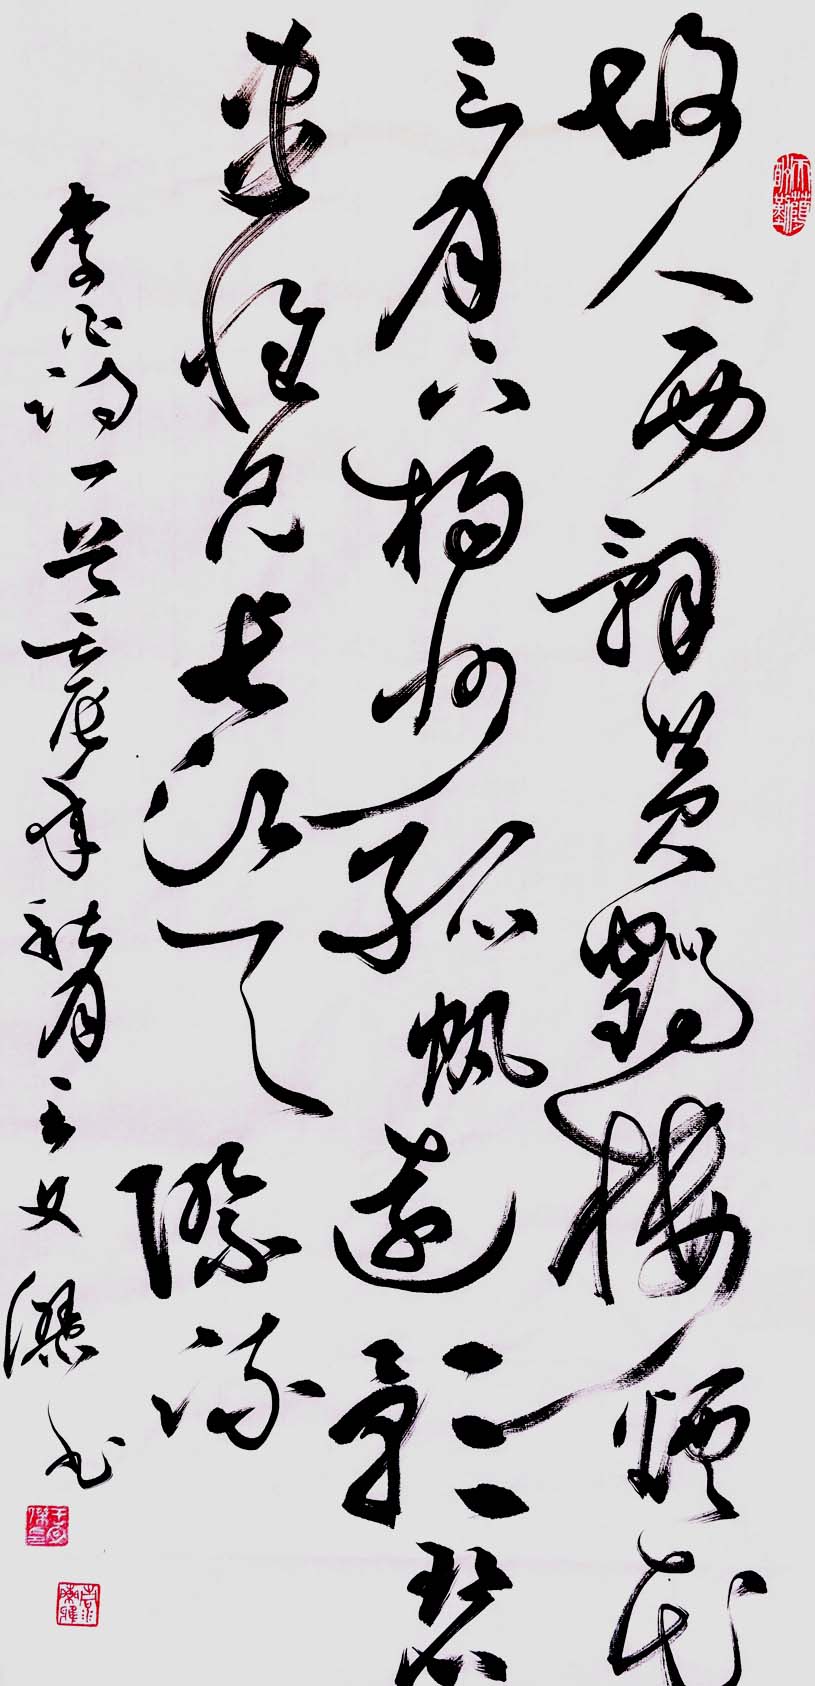 故人西辭黃鶴樓煙花
三月下揚州孤帆遠影碧
盡惟見長江天際流
李白詩一首壬辰年秋月王文書